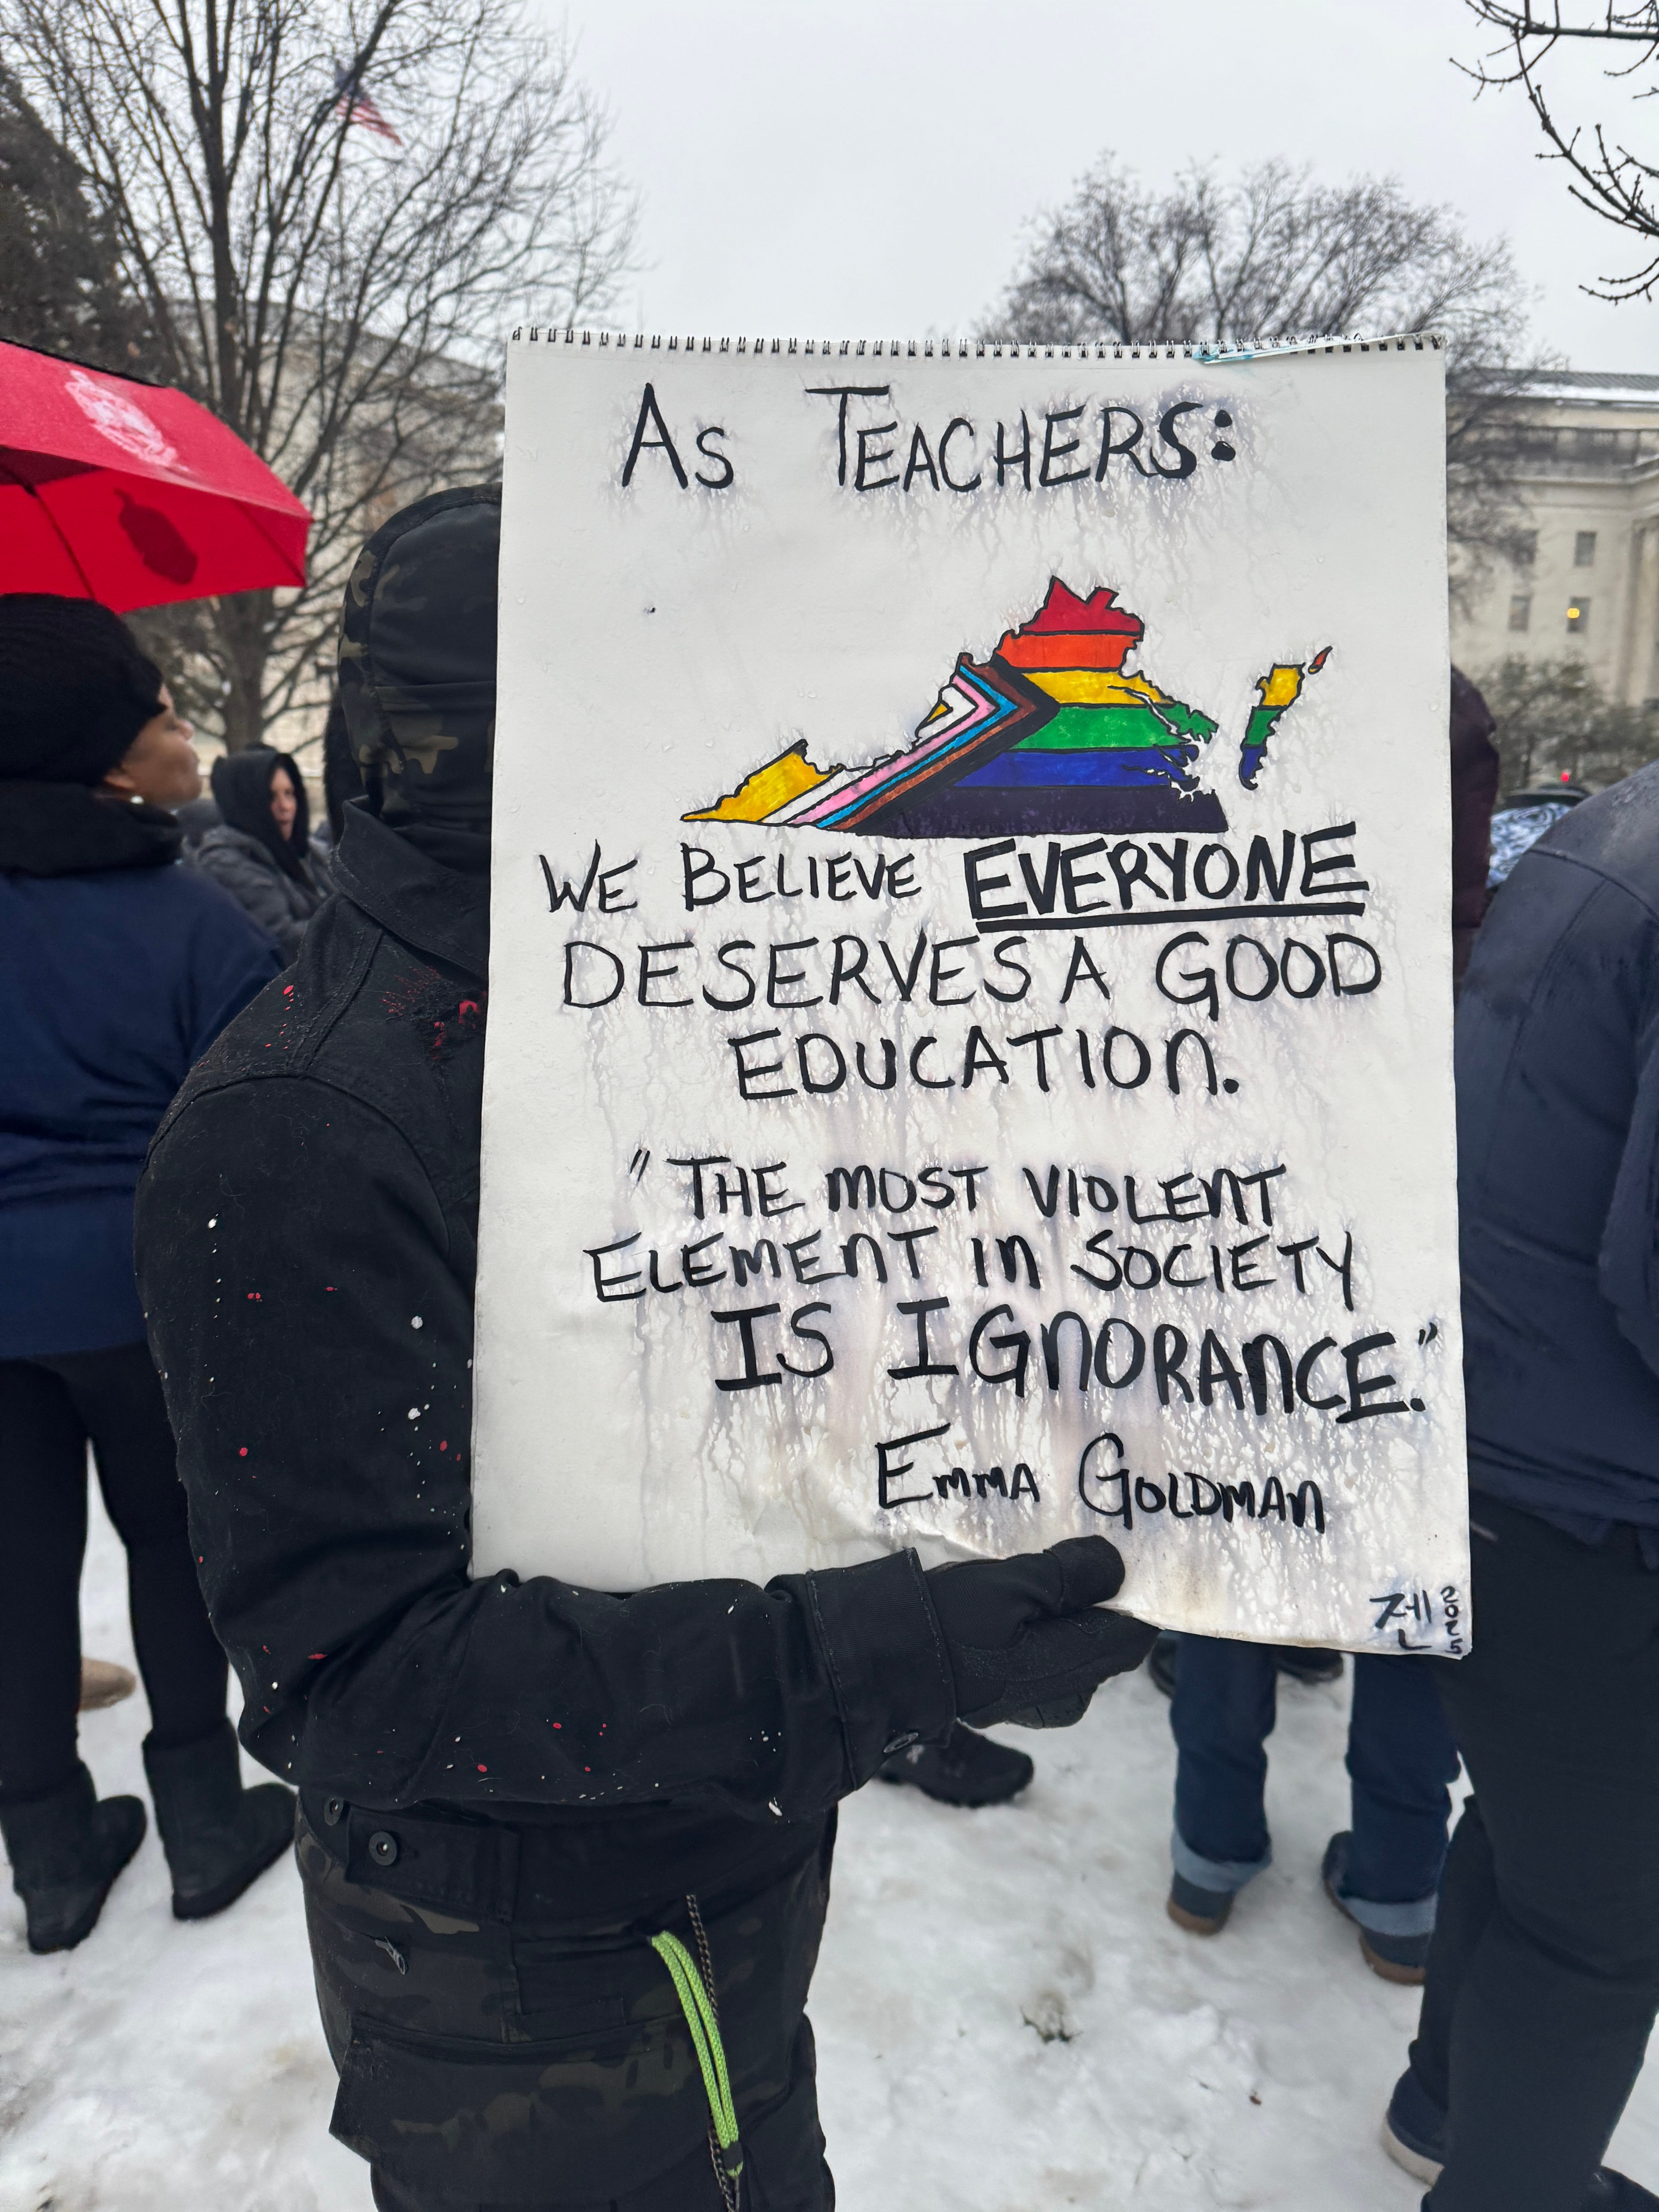 As TEACHERS:
WE BELIEVE EVERYONE
DESERVES A GOOD
EDUCATION.
"THE MOST VIOLENT
ELEMENT IN SOCIETY
IS IGNORANCE."
EMMA GOLDMAN
2025